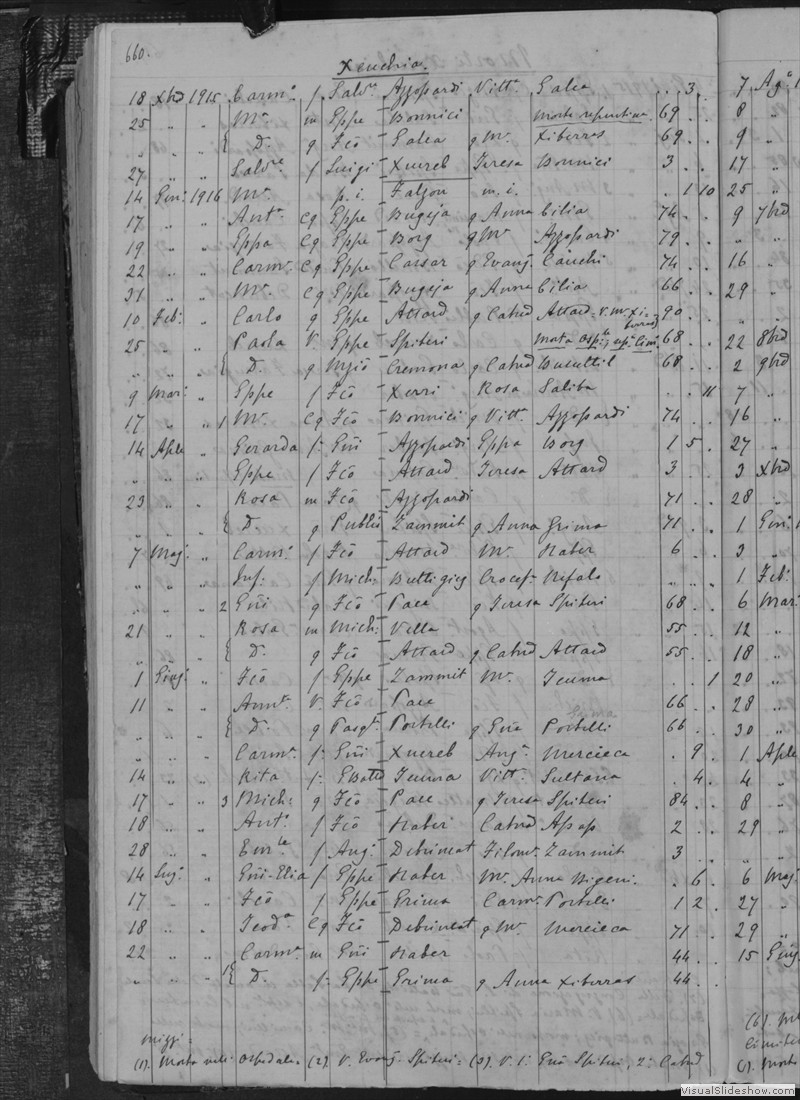 660.
Xeuchia.
18 Xbre 1915 Carmᵃ f Salvᵉ Azzopardi Vittᵃ Galea . . 3 . 7 Agᵒ
25 " " Mᵃ m Eppe Bonnici morte repentina 69 . . 8 "
" " " { D. q Fcō Galea q Mᵃ Xiberras 69 . . 9 "
27 " " Salvʳᵉ f Luigi Xuereb Teresa Bonnici 3 . . 17 "
14 Gen: 1916 Mᵃ p.i. Falzon m.i. . 1 10 25 "
17 " " Antᵃ Cg Eppe Bugeja q Anna Cilia 74 . . 9 7bre
19 " " Eppa Cg Eppe Borg q Mᵃ Azzopardi 79 . . " "
22 " " Carmᵃ Cg Eppe Cassar q Evang. Cauchi 74 . . 16 "
31 " " Mᵃ Cg Eppe Bugeja q Anna Cilia 66 . . 29 "
10 Feb: " Carlo q Eppe Attard q Catnā Attard = V. Mᵃ Xiberras 90 . . " "
25 " " Paola V. Eppe Spiteri 68 . . 22 8bre
" " " { D. q Cremona q Catnā Busuttil 68 . . 2 9bre
9 Mar: " Eppe f Fcō Xerri Rosa Saliba . . 11 7 "
17 " " 1 Mᵃ Cg Fcō Bonnici q Vittᵃ Azzopardi 74 . . 16 "
14 Aple " Gerarda f. Gñi Azzopardi Eppa Borg 1 5 . 27 "
" " " Eppe f Fcō Attard Teresa Attard 3 . . 3 Xbre
23 " " Rosa m Fcō Azzopardi 71 . . 28 "
" " " { D. q Publio Zammit q Anna Grima 71 . . 1 Gen:
7 Mag: " Carmᵃ f Fcō Attard Mᵃ Haber 6 . . 3 "
" " " Inf: f Mich: Buttigieg Crocefᵃ Refalo " . . 1 Feb:
" " " 2 Gñi q Fcō Pace q Teresa Spiteri 68 . . 6 Mar:
21 " " Rosa m Mich: Vella 55 . . 12 "
" " " { D. q Fcō Attard q Catnā Attard 55 . . 18 "
1 Giug: " Fcō f Eppe Zammit Mᵃ Teuma . . 1 20 "
11 " " Annᵃ V. Fcō Pace 66 . . 28 "
" " " { D. q Pasqᵉ Portelli q Portelli 66 . . 30 "
" " " Carmᵃ f. Gñi Xuereb Angᵃ Mercieca . 9 . 1 Aple
14 " " Rita f. Gbatta Teuma Vittᵃ Sultana . 4 . 4 "
17 " " 3 Mich: q Fcō Pace q Teresa Spiteri 84 . . 8 "
18 " " Antᵃ f Fcō Haber Catnā 2 . . 29 "
28 " " Emˡᵉ f Ang: Debrincat Filomᵃ Zammit 3 . .
14 Lug: " Gñi-Elia f Eppe Haber Mᵃ Anna . 6 . 6 Mag:
17 " " Fcō f Eppe Grima Carmᵃ Portelli 1 2 . 27 "
18 " " Teodᵃ Cg Fcō Debrincat q Mᵃ Mercieca 71 . . 29 "
22 " " Carmᵃ m Gñi Haber 44 . . 15 Giug:
" " " 1{ D. f. Eppe Grima q Anna Xiberras 44 . .
(1). Morta nell: Ospedale. (2). V. Evang. Spiteri = (3). V. 1: Spiteri, 2: Catnā
VisualSlideshow.com